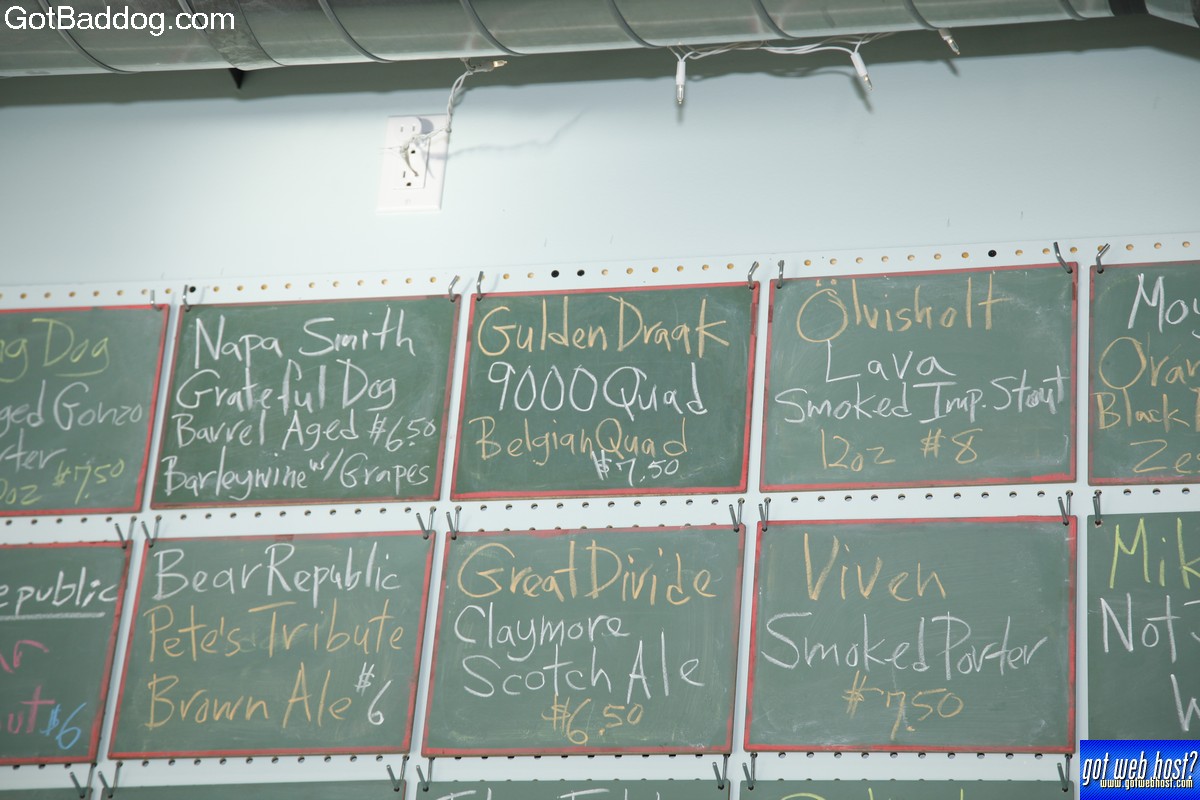 GotBaddog.com
Dog
ged Gonzo
$7.50
Napa Smith
Grateful Dog
Barrel Aged $6.50
Barleywine w/Grapes
Gulden Draak
9000 Quad
Belgian Quad
$7.50
Ölvisholt
Lava
Smoked Imp. Stout
12oz $8
Black
epublic
$6
Bear Republic
Pete's Tribute
Brown Ale $6
Great Divide
Claymore
Scotch Ale
$6.50
Viven
Smoked Porter
$7.50
Mik
Not
W
got web host?
www.gotwebhost.com